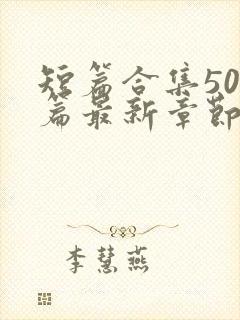 短篇合集50
篇最新章節
李慧燕